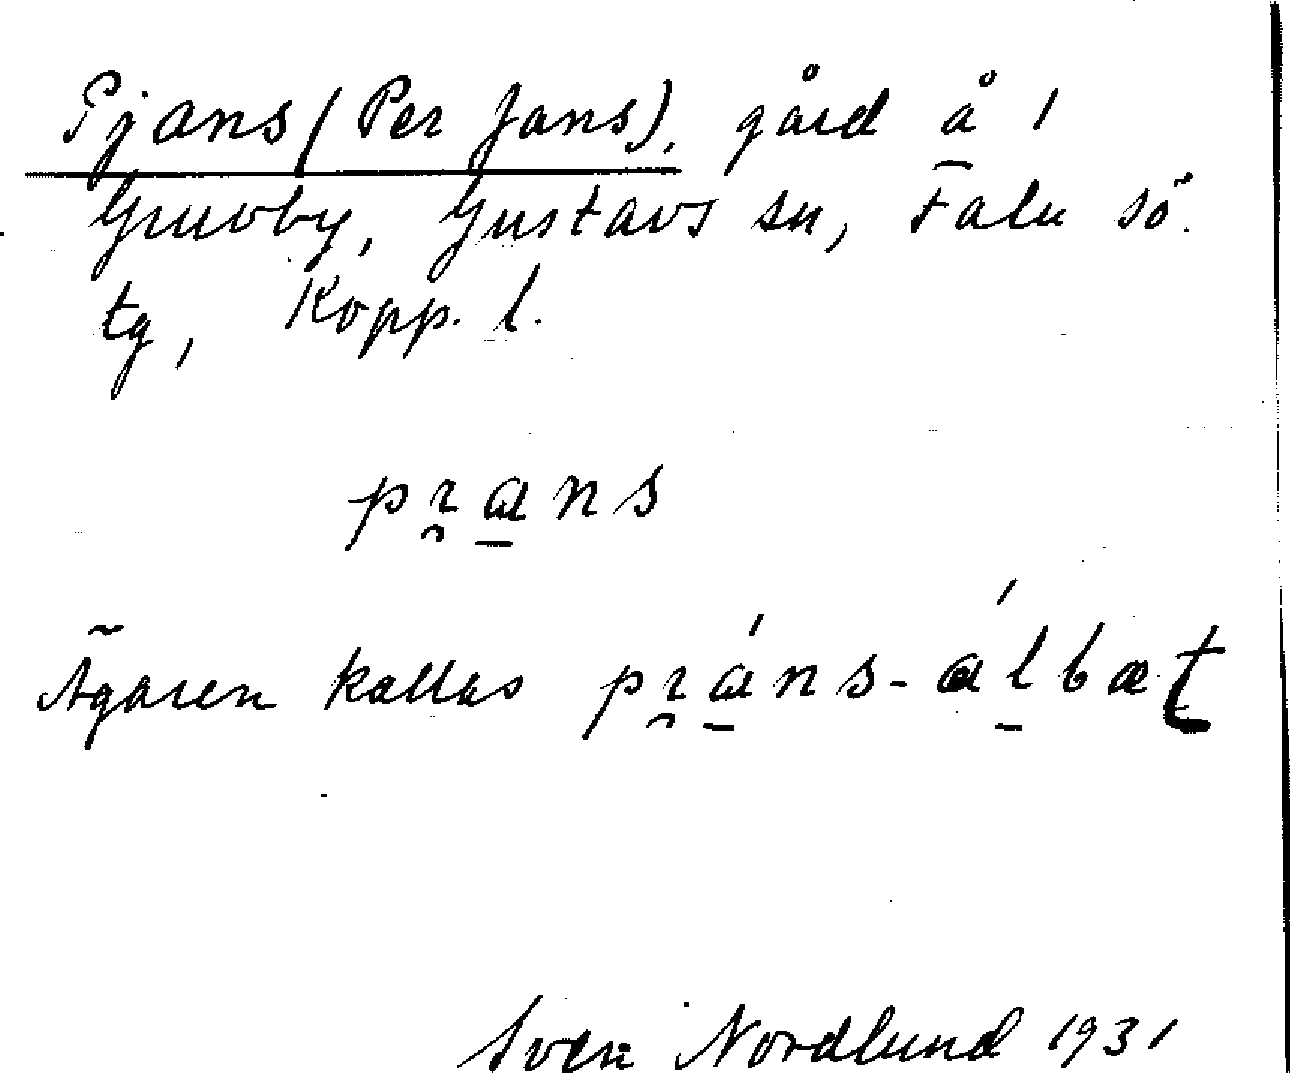 Pjans (Per Jans), gård å 1
Gruvby, Gustavs sn, Falu sö.
tg, Kopp. l.
pr̯a̱ns
Ägaren kallas pr̯á̱ns-álbæt
Sven Nordlund 1931